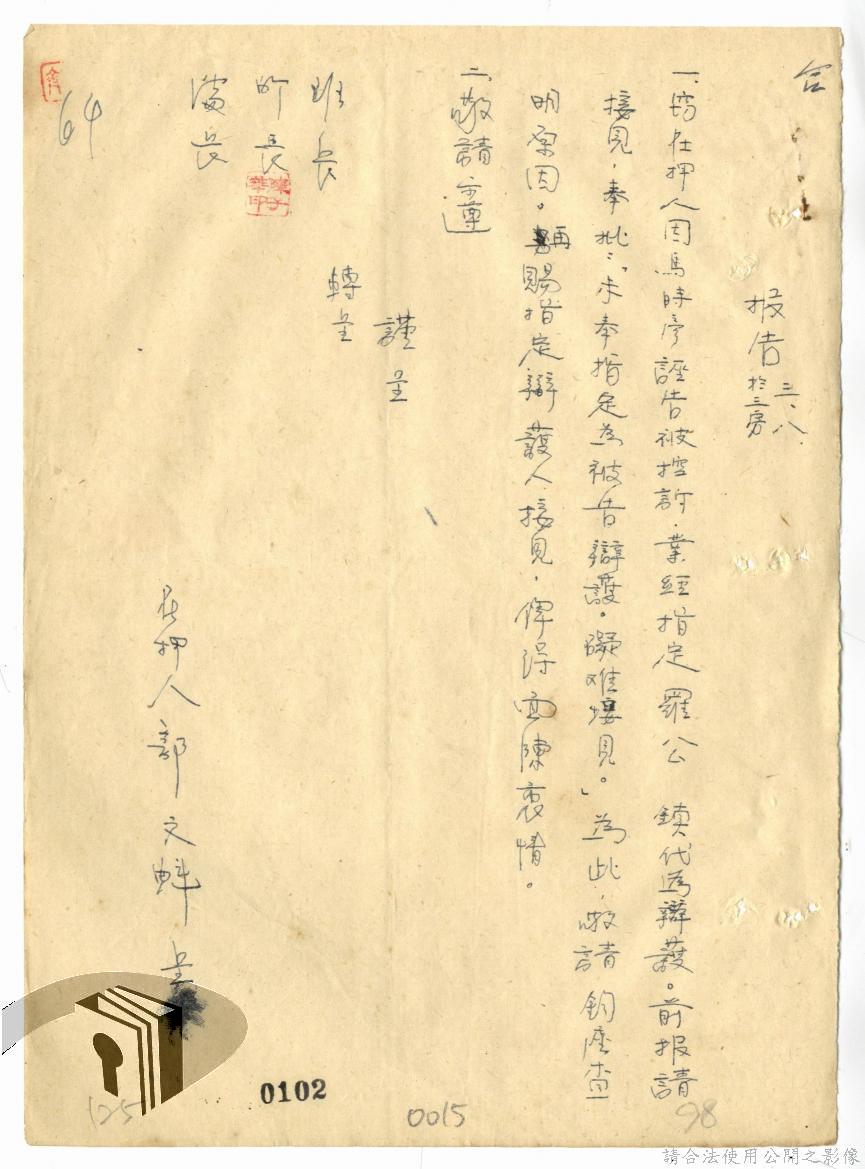 报告 三.八
於三房
一、窃在押人因馬時彥誣告被控訴.業經指定羅公 鐨代為辯護。前报請
接見.奉批:「未奉指定為被告辯護。礙難接見。」為此.敬請 鈞座查
明原因。再賜指定辯護人接見.俾得面陳衷情。
二、敬請示遵
謹呈
班長
所長 轉呈
在押人 文蚌 呈
64
0102
0015
98
125
請合法使用公開之影像